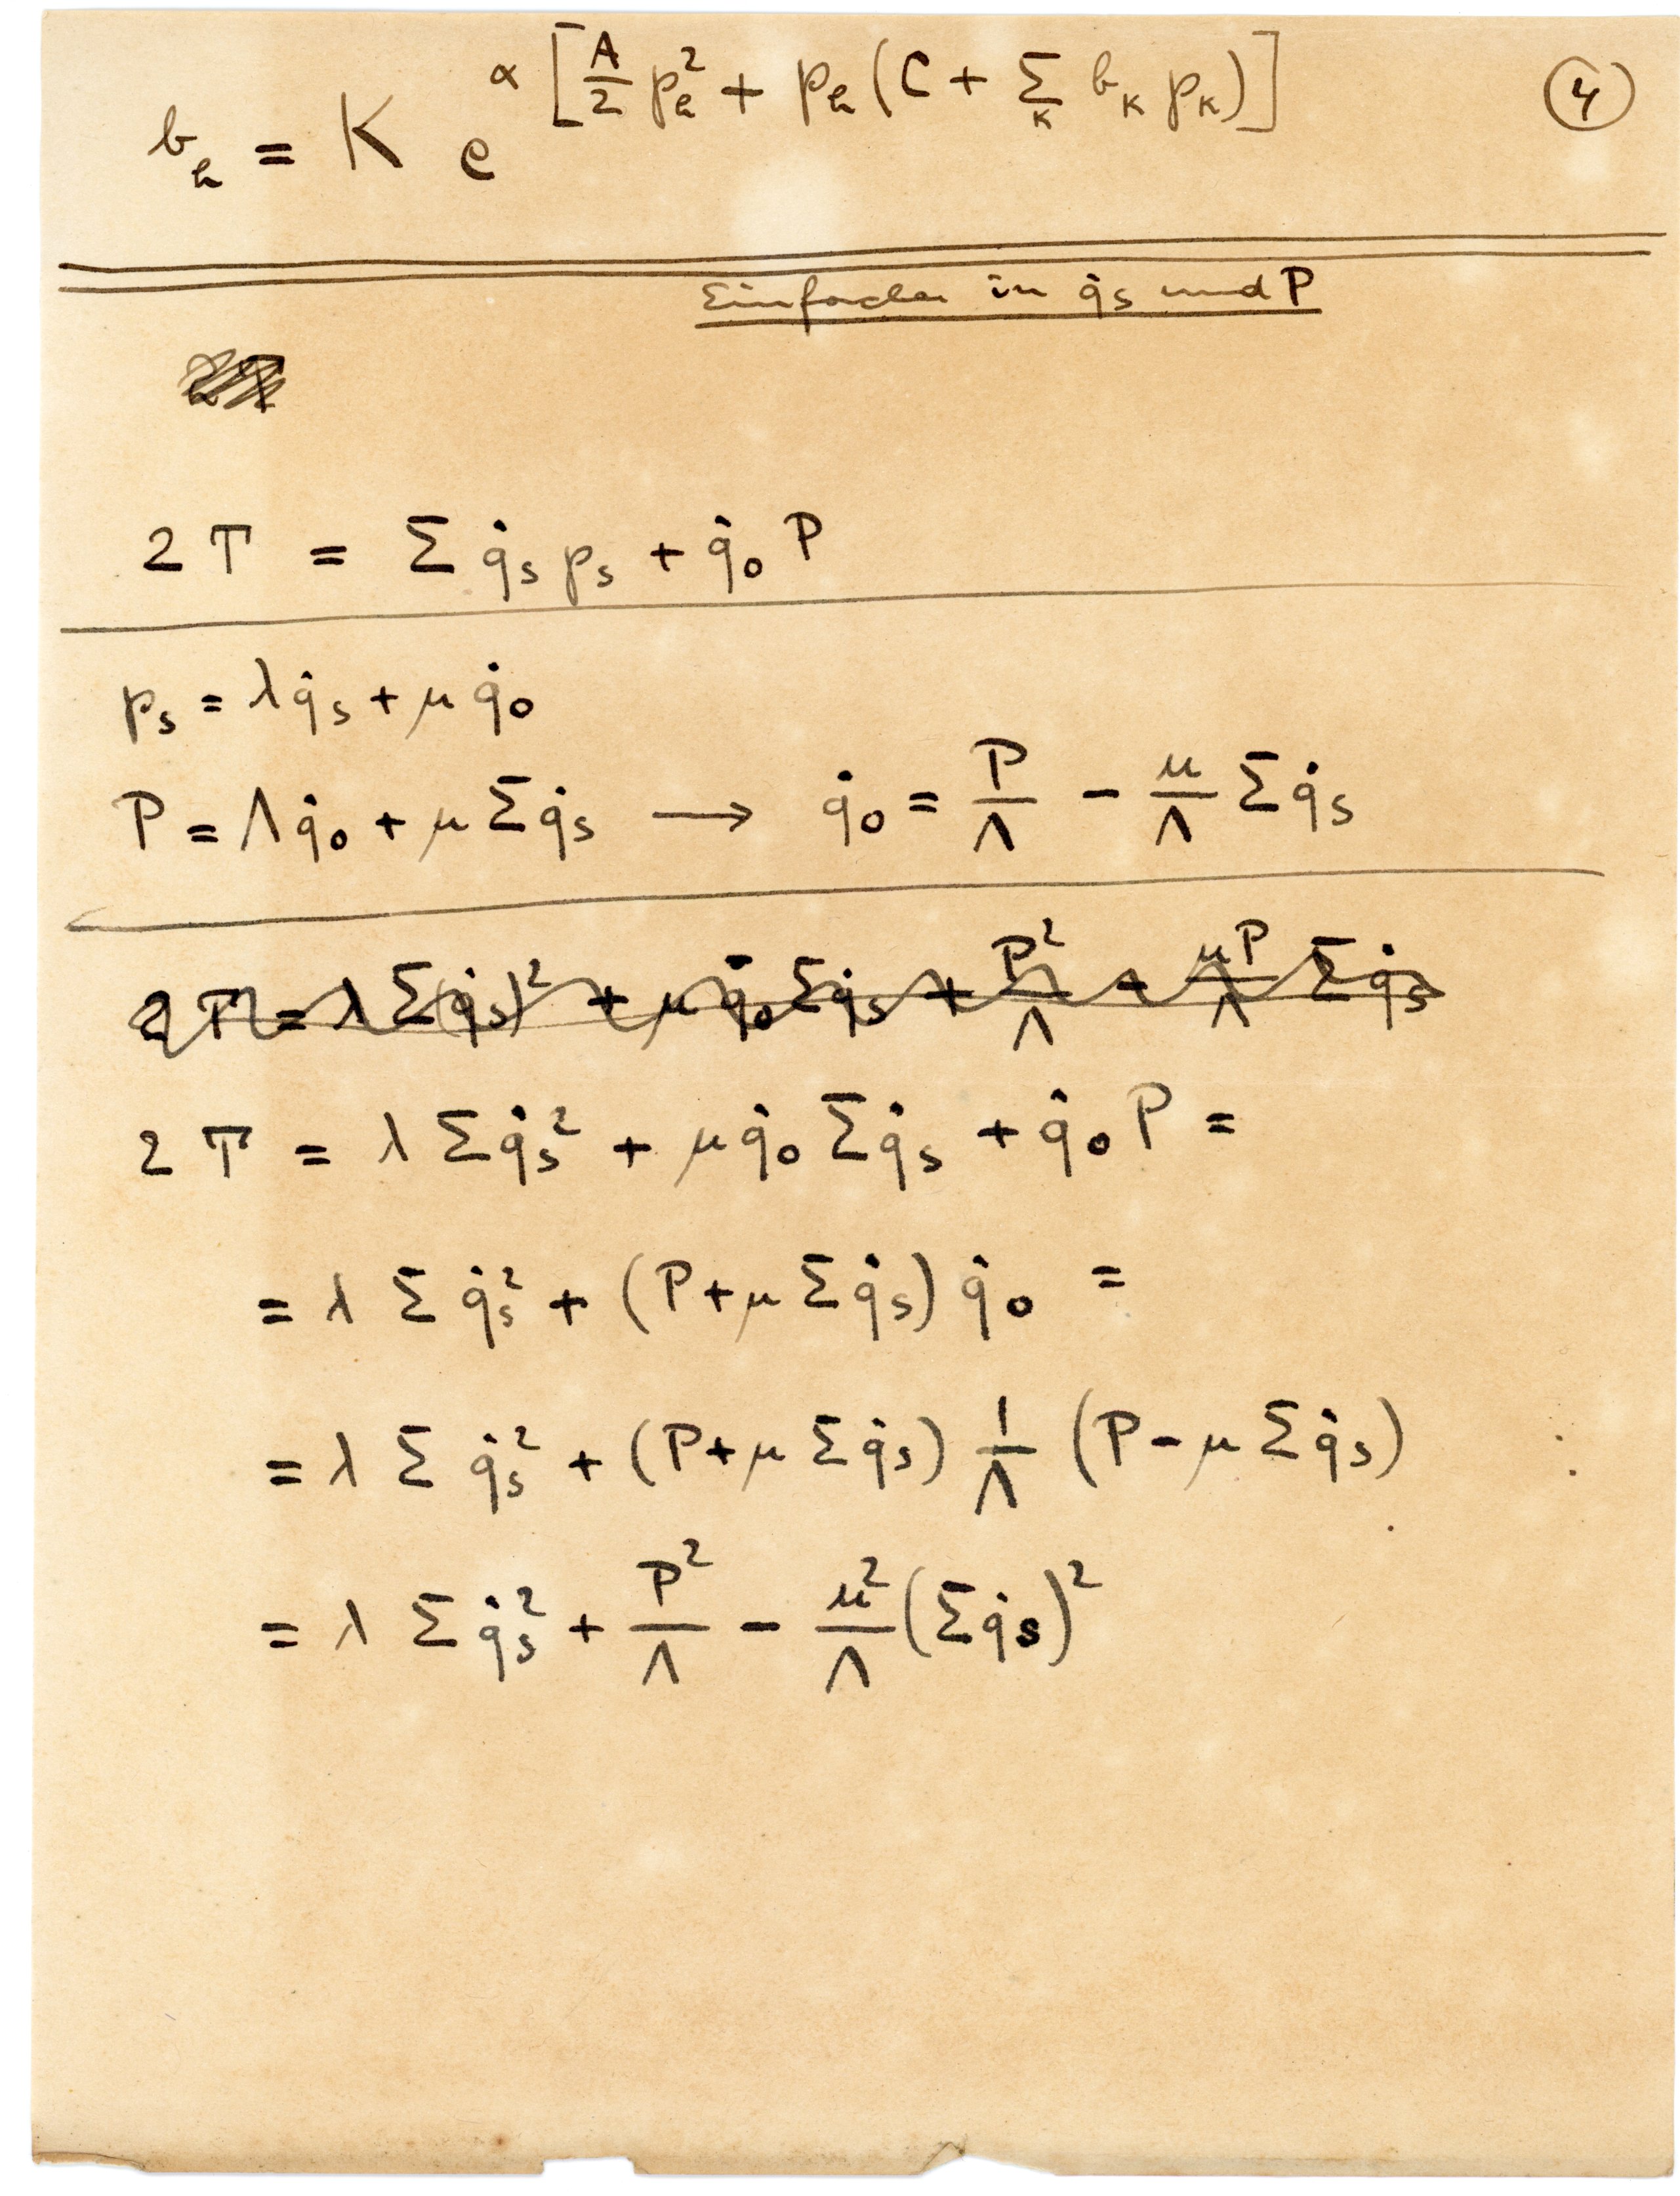 b_e = K e^{α [A/2 p_e² + p_e (C + Σ_k b_k p_k)]} (4)
Einfacher in q̇_s und P
2 T = Σ q̇_s p_s + q̇_0 P
p_s = λ q̇_s + μ q̇_0
P = Λ q̇_0 + μ Σ q̇_s → q̇_0 = P/Λ - μ/Λ Σ q̇_s
2 T = λ Σ (q̇_s)² + μ q̇_0 Σ q̇_s + P²/Λ - μP/Λ Σ q̇_s
2 T = λ Σ q̇_s² + μ q̇_0 Σ q̇_s + q̇_0 P =
= λ Σ q̇_s² + (P + μ Σ q̇_s) q̇_0 =
= λ Σ q̇_s² + (P + μ Σ q̇_s) 1/Λ (P - μ Σ q̇_s)
= λ Σ q̇_s² + P²/Λ - μ²/Λ (Σ q̇_s)²